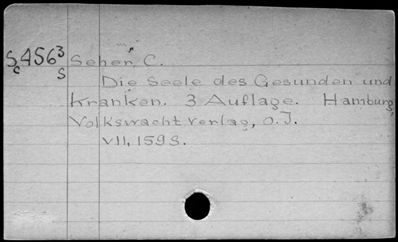 S 456³ Seher, C.
c S
Die Seele des Gesunden und
Kranken. 3 Auflage. Hamburg,
Volkswacht Verlag, O.J.
VII, 159 S.